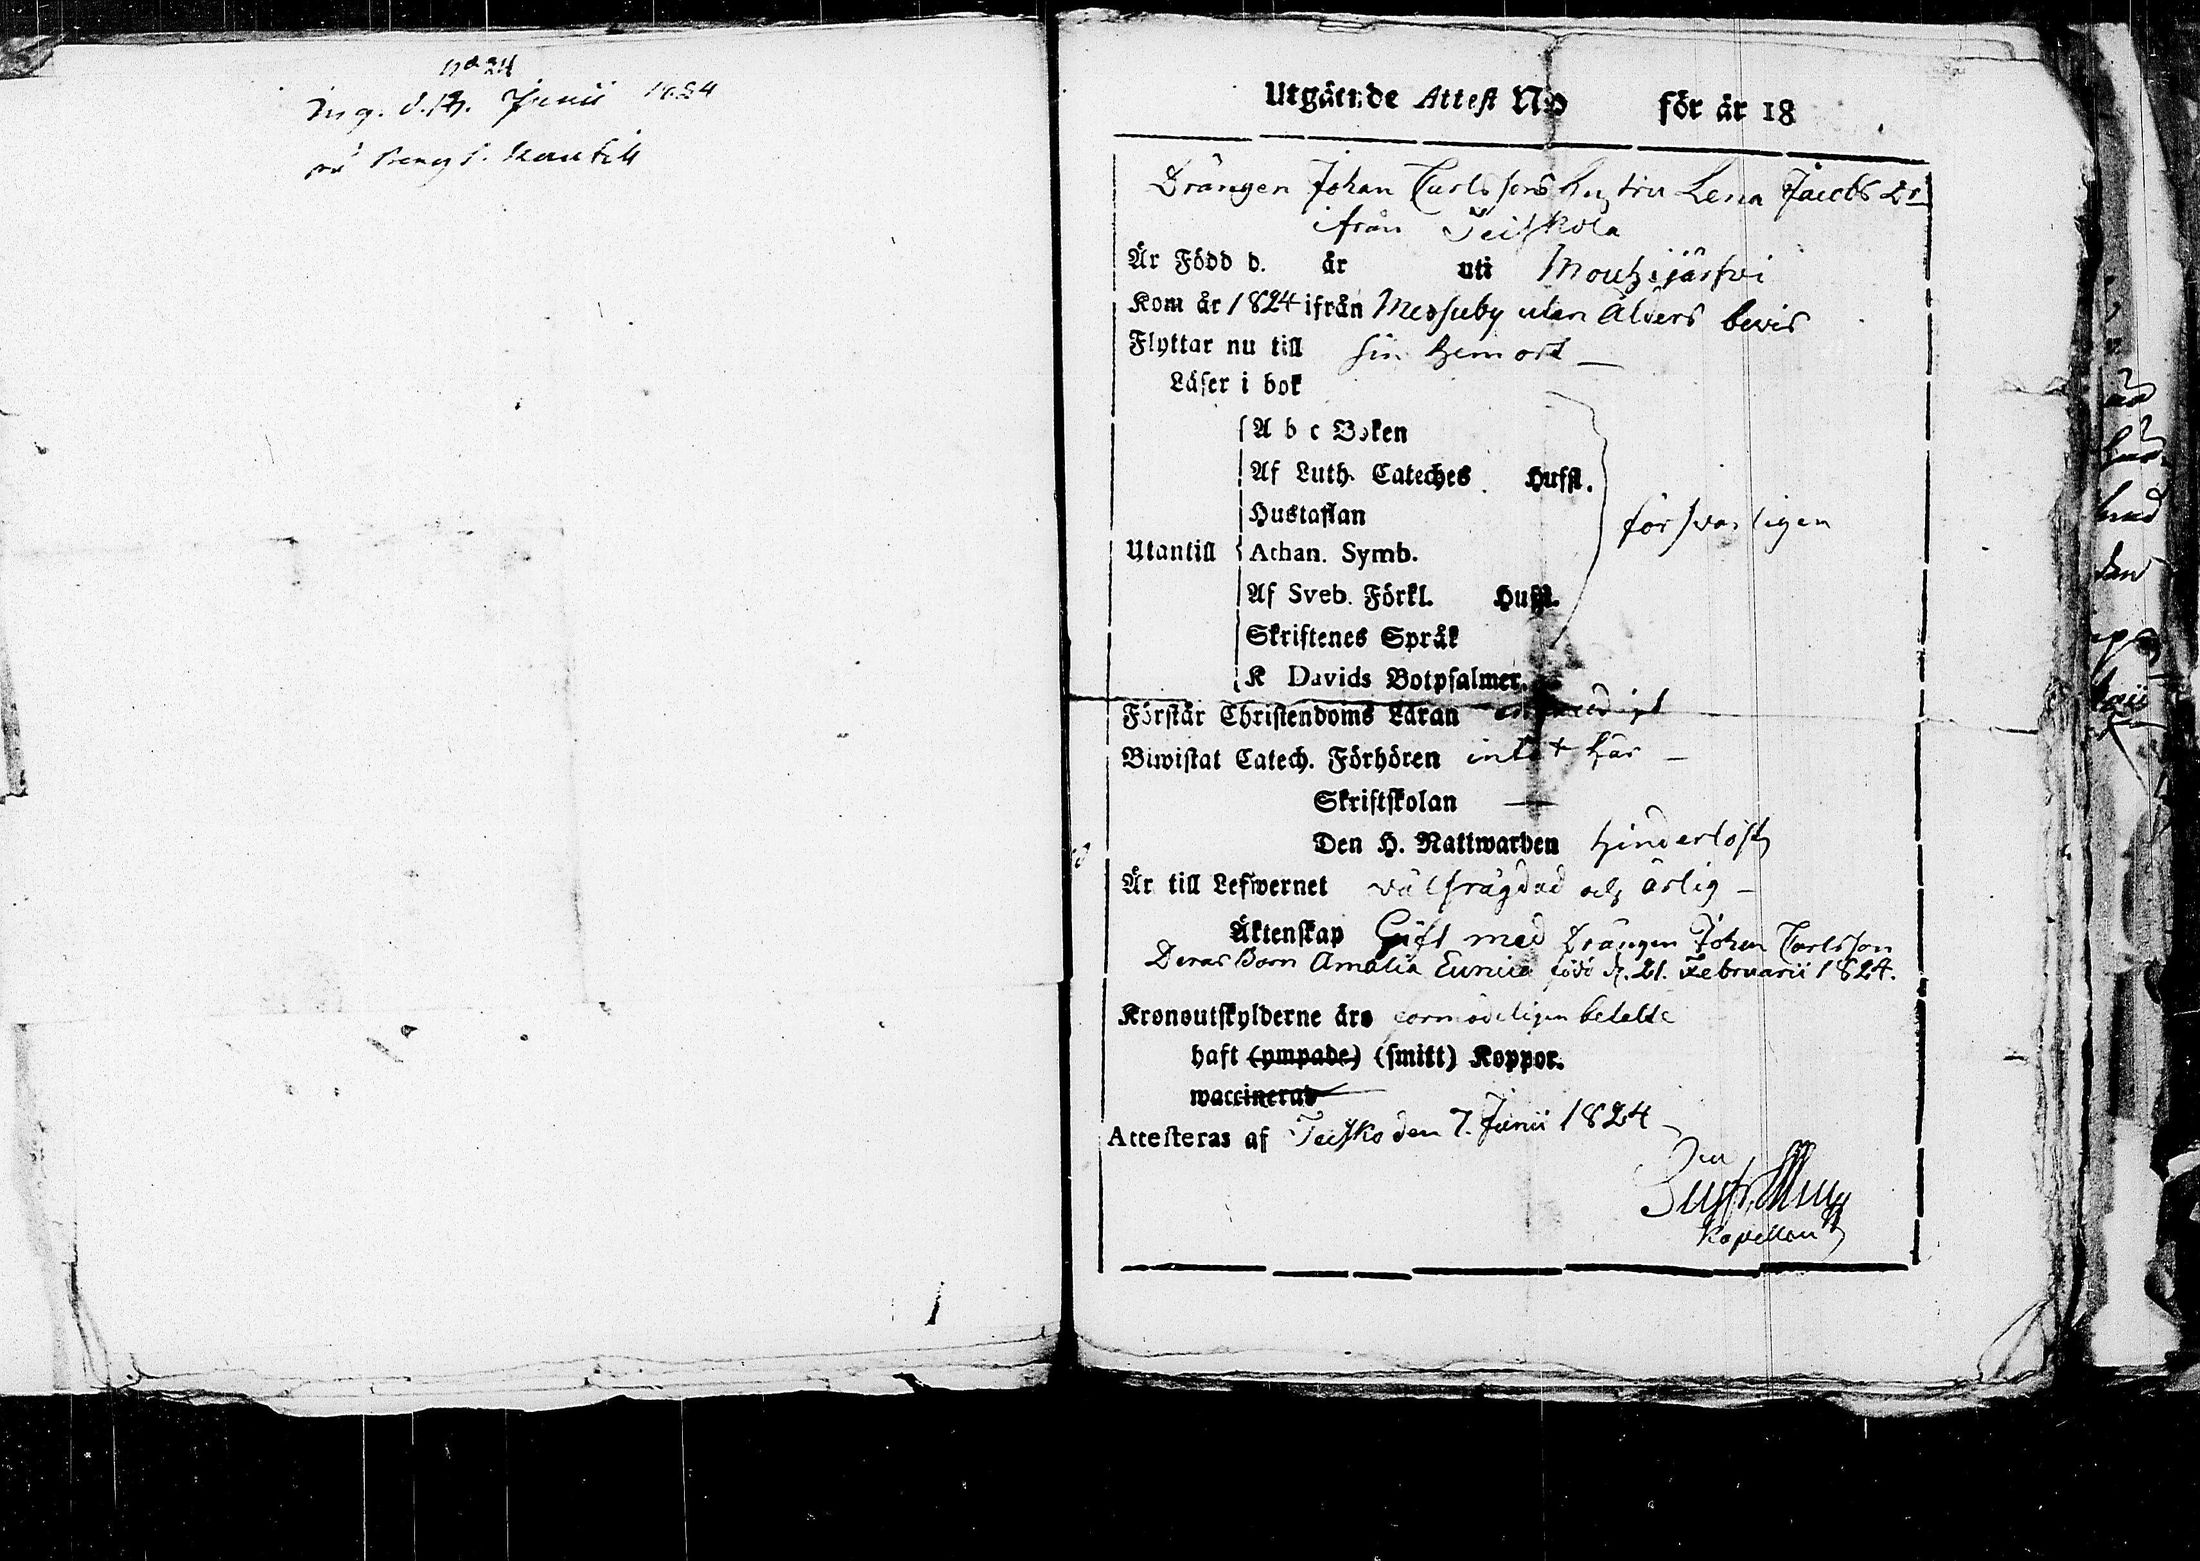 No 24
Ing. d. Junii 1824
Utgående Attest No för år 18
Drängen Johan Carlssons hustru Lena Jacobs Dr
ifrån Teiskola
Är Född d. år uti Mouhijärfwi
Kom år 1824 ifrån Messuby utan Ålders bevis
Flyttar nu till sin hemort —
Läser i bok
A b c Boken
Af Luth. Cateches Hufst.
Hustaflan
försvarligen
Utantill Athan. Symb.
Af Sveb. Förkl. Hufst.
Skriftenes Språk
K Davids Botpsalmer.
Förstår Christendoms Läran
Biwistat Catech. Förhören intet här —
Skriftskolan —
Den H. Nattwarden hinderlöst
Är till Lefwernet välfrägdad och ärlig —
Äktenskap Gift med Drängen Johan Carlsson
Deras Barn Amalia Eunica född d. 21. Februarii 1824.
Kronoutskylderne äro förmodeligen betalte
haft (ympade) (smitt) Koppor.
waccinerad
Attesteras af Teisko den 7. Junii 1824
Kapellan